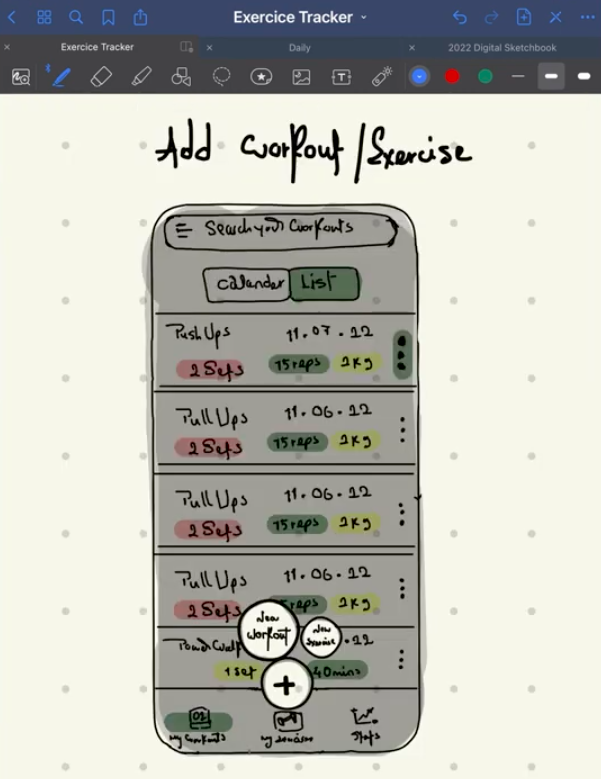 Exercice Tracker
Exercice Tracker
Daily
2022 Digital Sketchbook
Add Workout/Exercise
Search your Workouts
Calander
List
Push Ups
11.07.22
2 Sets
15 reps
2Kg
Pull Ups
11.06.22
2 Sets
15 reps
2Kg
Pull Ups
11.06.22
2 Sets
15 reps
2Kg
Pull Ups
11.06.22
2 Sets
reps
2Kg
New
Workout
New
Exercise
.22
1 Set
40mins
+
My Workouts
Stats